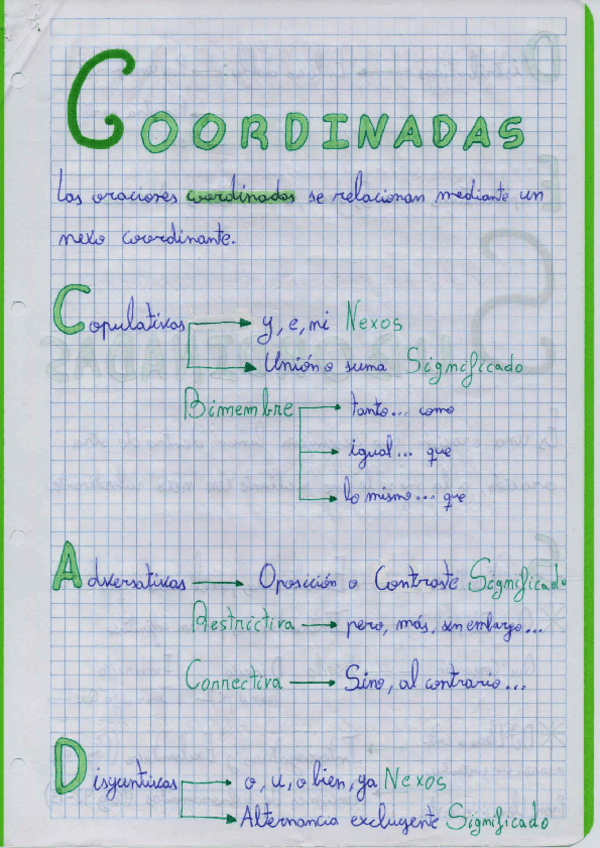 COORDINADAS
Las oraciones coordinadas se relacionan mediante un
nexo coordinante.
Copulativas → y, e, ni Nexos
→ Unión o suma Significado
Bimembre → tanto... como
→ igual... que
→ lo mismo... que
Adversativas → Oposición o Contraste Significado
Restrictiva → pero, más, sin embargo...
Correctiva → Sino, al contrario...
Disyuntivas → o, u, o bien, ya Nexos
→ Alternancia excluyente Significado